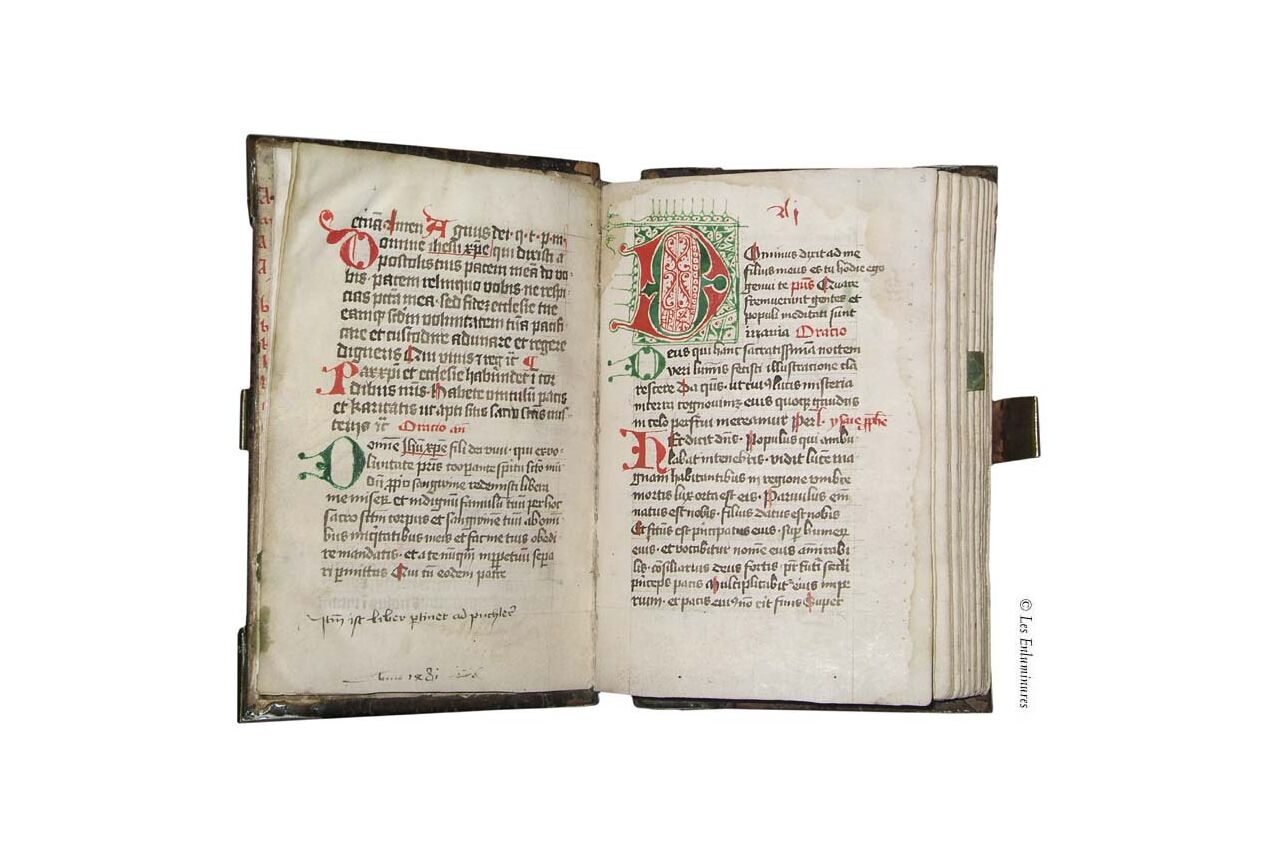 etnā Amen Agnus dei q t p m
Domine ihesu xpe qui dixisti a
postolis tuis pacem meā do vo
bis pacem relinquo vobis ne respi
cias pctā mea sed fidez ecclesie tue
eamqz scdm voluntatem tuā pacifi
care et custodire adunare et regere
digneris Qui vivis et reg
Pax xpi et ecclesie habundet i cor
dibus nris Habete vinculū pacis
et karitatis ut apti sitis sacro sctis mis
teriis Oratio
Domie ihu xpe fili dei vivi qui ex vo
lūtate pris cooperante spiritu scto
sanguine redemisti libera
me miserz et indignū famulū tuū per hoc
sacro scm corpus et sanguinem tuū ab omi
bus iniquitatibus meis et fac me tuis obedi
re mandatis et a te nūqm inperpetuū sepa
ri permittas Qui cū eodem patre
liber ptinet ad puchler
Anno 1481
Dominus dixit ad me
filius meus es tu hodie ego
genui te ps Quare
fremuerunt gentes et
populi meditati sunt
inania Oratio
Deus qui hanc sacratissimā noctem
veri luminis fecisti illustratione cla
rescere Da qs ut cuius lucis misteria
in terra cognovimz eius quoqz gaudiis
in celo perfrui mereamur ysaie pphe
Hec dicit dns Populus qui ambu
labat in tenebris vidit lucē ma
gnam habitantibus in regione umbre
mortis lux orta est eis Parvulus em
natus est nobis filius datus est nobis
Et fctus est pncipatus eius sup humerz
eius et vocabitur nomē eius amirabi
lis cōsiliarius deus fortis pr futi secli
princeps pacis Multiplicabit eius impe
rium et pacis eius nō erit finis Super
© Les Enluminures